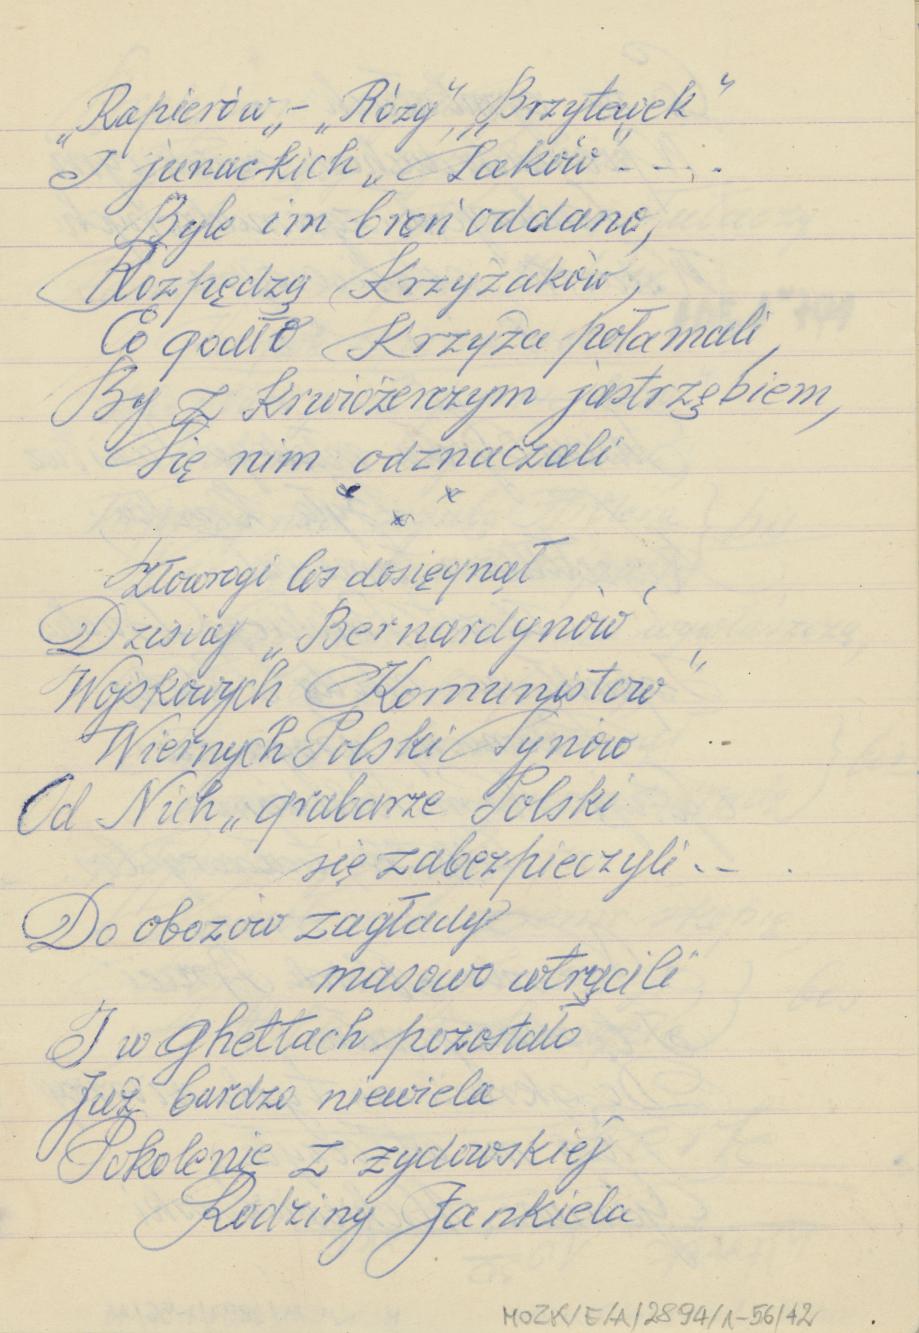 „Rapierów„- „Rózg", „Brzytewek"
I junackich „Laków" - - - .
Byle im broń oddano,
Rozpędzą Krzyżaków,
Co godło Krzyża połamali,
By z krwiożerczym jastrzębiem,
Się nim odznaczali
x x
x
Złowrogi los dosięgnął
Dzisiaj „Bernardynów,
Wojskowych Komunistów"
Wiernych Polski Synów
Od Nich „grabarze Polski
się zabezpieczyli - -
Do obozów zagłady
masowo wtrącili
I w ghettach pozostało
Już bardzo niewiela
Pokolenie z żydowskiej
Rodziny Jankiela
MOZK/E/A/2894/1-56/42